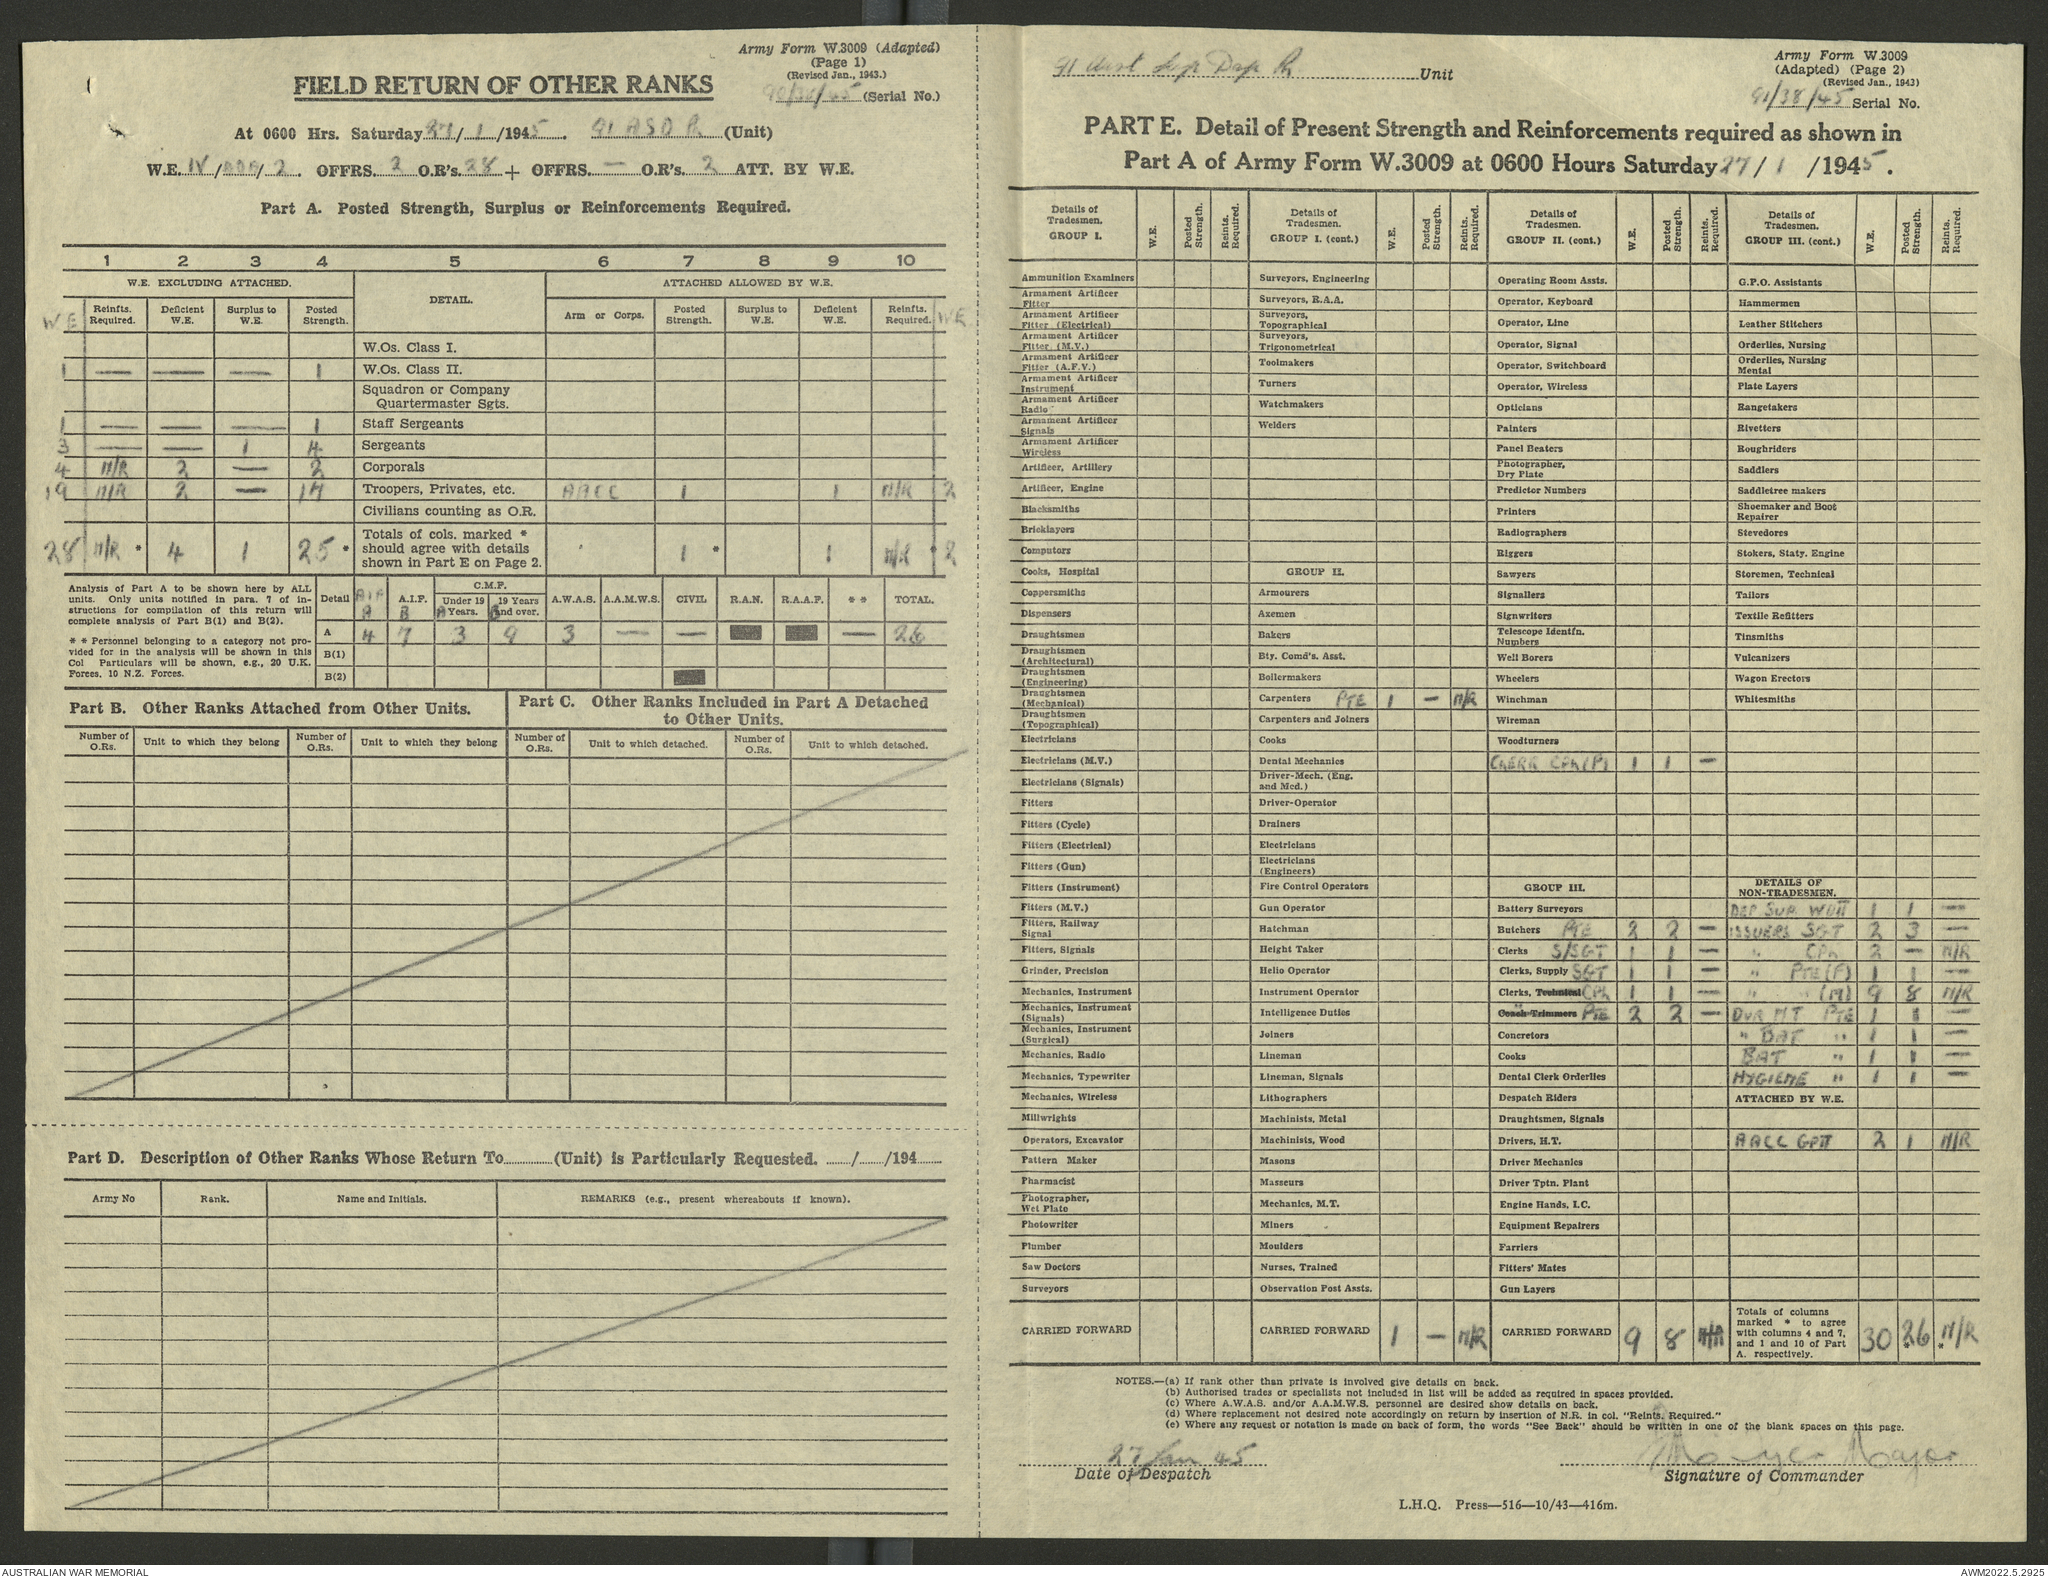 Army Form W.3009 (Adapted)
(Page 1)
(Revised Jan., 1943.)
FIELD RETURN OF OTHER RANKS
(Serial No.)
At 0600 Hrs. Saturday 27/1/1945. 91 ASD P (Unit)
W.E. IV/ /2. OFFRS. 2 O.R's. 28 + OFFRS. — O.R's. 2 ATT. BY W.E.
Part A. Posted Strength, Surplus or Reinforcements Required.
1 2 3 4 5 6 7 8 9 10
W.E. EXCLUDING ATTACHED. DETAIL. ATTACHED ALLOWED BY W.E.
W E Reinfts. Required. Deficient W.E. Surplus to W.E. Posted Strength. Arm or Corps. Posted Strength. Surplus to W.E. Deficient W.E. Reinfts. Required. W E
W.Os. Class I.
1 — — — 1 W.Os. Class II.
Squadron or Company
Quartermaster Sgts.
1 — — — 1 Staff Sergeants
3 — — 1 4 Sergeants
4 N/R 2 — 2 Corporals
19 N/R 2 — 17 Troopers, Privates, etc. AACC 1 1 N/R 2
Civilians counting as O.R.
28 N/R * 4 1 25 * Totals of cols. marked * should agree with details shown in Part E on Page 2. 1 * 1 N/R * 2
Analysis of Part A to be shown here by ALL
units. Only units notified in para. 7 of in-
structions for compilation of this return will
complete analysis of Part B(1) and B(2).
* * Personnel belonging to a category not pro-
vided for in the analysis will be shown in this
Col Particulars will be shown, e.g., 20 U.K.
Forces, 10 N.Z. Forces.
C.M.F.
Detail AIF A A.I.F. B Under 19 Years. A 19 Years and over. B A.W.A.S. A.A.M.W.S. CIVIL R.A.N. R.A.A.F. * * TOTAL.
A 4 7 3 9 3 — — — 26
B(1)
B(2)
Part B. Other Ranks Attached from Other Units.
Number of O.Rs. Unit to which they belong Number of O.Rs. Unit to which they belong
Part C. Other Ranks Included in Part A Detached
to Other Units.
Number of O.Rs. Unit to which detached. Number of O.Rs. Unit to which detached.
Part D. Description of Other Ranks Whose Return To............(Unit) is Particularly Requested. ....../....../194......
Army No Rank. Name and Initials. REMARKS (e.g., present whereabouts if known).
91 Aust Sup Dep Pl Unit
Army Form W.3009
(Adapted) (Page 2)
(Revised Jan., 1943)
91/38/45 Serial No.
PART E. Detail of Present Strength and Reinforcements required as shown in
Part A of Army Form W.3009 at 0600 Hours Saturday 27/1/1945.
Details of Tradesmen. GROUP I. W.E. Posted Strength. Reints. Required.
Ammunition Examiners
Armament Artificer Fitter
Armament Artificer Fitter (Electrical)
Armament Artificer Fitter (M.V.)
Armament Artificer Fitter (A.F.V.)
Armament Artificer Instrument
Armament Artificer Radio
Armament Artificer Signals
Armament Artificer Wireless
Artificer, Artillery
Artificer, Engine
Blacksmiths
Bricklayers
Computors
Cooks, Hospital
Coppersmiths
Dispensers
Draughtsmen
Draughtsmen (Architectural)
Draughtsmen (Engineering)
Draughtsmen (Mechanical)
Draughtsmen (Topographical)
Electricians
Electricians (M.V.)
Electricians (Signals)
Fitters
Fitters (Cycle)
Fitters (Electrical)
Fitters (Gun)
Fitters (Instrument)
Fitters (M.V.)
Fitters, Railway Signal
Fitters, Signals
Grinder, Precision
Mechanics, Instrument
Mechanics, Instrument (Signals)
Mechanics, Instrument (Surgical)
Mechanics, Radio
Mechanics, Typewriter
Mechanics, Wireless
Millwrights
Operators, Excavator
Pattern Maker
Pharmacist
Photographer, Wet Plate
Photowriter
Plumber
Saw Doctors
Surveyors
CARRIED FORWARD
Details of Tradesmen. GROUP I. (cont.) W.E. Posted Strength. Reints. Required.
Surveyors, Engineering
Surveyors, R.A.A.
Surveyors, Topographical
Surveyors, Trigonometrical
Toolmakers
Turners
Watchmakers
Welders
GROUP II.
Armourers
Axemen
Bakers
Bty. Comd's. Asst.
Boilermakers
Carpenters PTE 1 — N/R
Carpenters and Joiners
Cooks
Dental Mechanics
Driver-Mech. (Eng. and Med.)
Driver-Operator
Drainers
Electricians
Electricians (Engineers)
Fire Control Operators
Gun Operator
Hatchman
Height Taker
Helio Operator
Instrument Operator
Intelligence Duties
Joiners
Lineman
Lineman, Signals
Lithographers
Machinists, Metal
Machinists, Wood
Masons
Masseurs
Mechanics, M.T.
Miners
Moulders
Nurses, Trained
Observation Post Assts.
CARRIED FORWARD 1 — N/R
Details of Tradesmen. GROUP II. (cont.) W.E. Posted Strength. Reints. Required.
Operating Room Assts.
Operator, Keyboard
Operator, Line
Operator, Signal
Operator, Switchboard
Operator, Wireless
Opticians
Painters
Panel Beaters
Photographer, Dry Plate
Predictor Numbers
Printers
Radiographers
Riggers
Sawyers
Signallers
Signwriters
Telescope Identfn. Numbers
Well Borers
Wheelers
Winchman
Wireman
Woodturners
CLERK CPL (P) 1 1 —
GROUP III.
Battery Surveyors
Butchers PTE 2 2 —
Clerks S/SGT 1 1 —
Clerks, Supply SGT 1 1 —
Clerks, Technical CPL 1 1 —
Coach Trimmers PTE 2 2 —
Concretors
Cooks
Dental Clerk Orderlies
Despatch Riders
Draughtsmen, Signals
Drivers, H.T.
Driver Mechanics
Driver Tptn. Plant
Engine Hands, I.C.
Equipment Repairers
Farriers
Fitters' Mates
Gun Layers
CARRIED FORWARD 9 8 N/R
Details of Tradesmen. GROUP III. (cont.) W.E. Posted Strength. Reints. Required.
G.P.O. Assistants
Hammermen
Leather Stitchers
Orderlies, Nursing
Orderlies, Nursing Mental
Plate Layers
Rangetakers
Rivetters
Roughriders
Saddlers
Saddletree makers
Shoemaker and Boot Repairer
Stevedores
Stokers, Staty. Engine
Storemen, Technical
Tailors
Textile Refitters
Tinsmiths
Vulcanizers
Wagon Erectors
Whitesmiths
DETAILS OF NON-TRADESMEN.
DEP SUP WOII 1 1 —
ISSUERS SGT 2 3 —
" CPL 2 — N/R
" PTE (F) 1 1 —
" " (M) 9 8 N/R
DVR MT PTE 1 1 —
" BAT " 1 1 —
BAT " 1 1 —
HYGIENE " 1 1 —
ATTACHED BY W.E.
AACC GPII 2 1 N/R
Totals of columns marked * to agree with columns 4 and 7, and 1 and 10 of Part A. respectively. 30 26 * N/R *
NOTES.—(a) If rank other than private is involved give details on back.
(b) Authorised trades or specialists not included in list will be added as required in spaces provided.
(c) Where A.W.A.S. and/or A.A.M.W.S. personnel are desired show details on back.
(d) Where replacement not desired note accordingly on return by insertion of N.R. in col. "Reints. Required."
(e) Where any request or notation is made on back of form, the words "See Back" should be written in one of the blank spaces on this page.
27 Jan 45
Date of Despatch
Major
Signature of Commander
L.H.Q. Press—516—10/43—416m.
AUSTRALIAN WAR MEMORIAL
AWM2022.5.2925